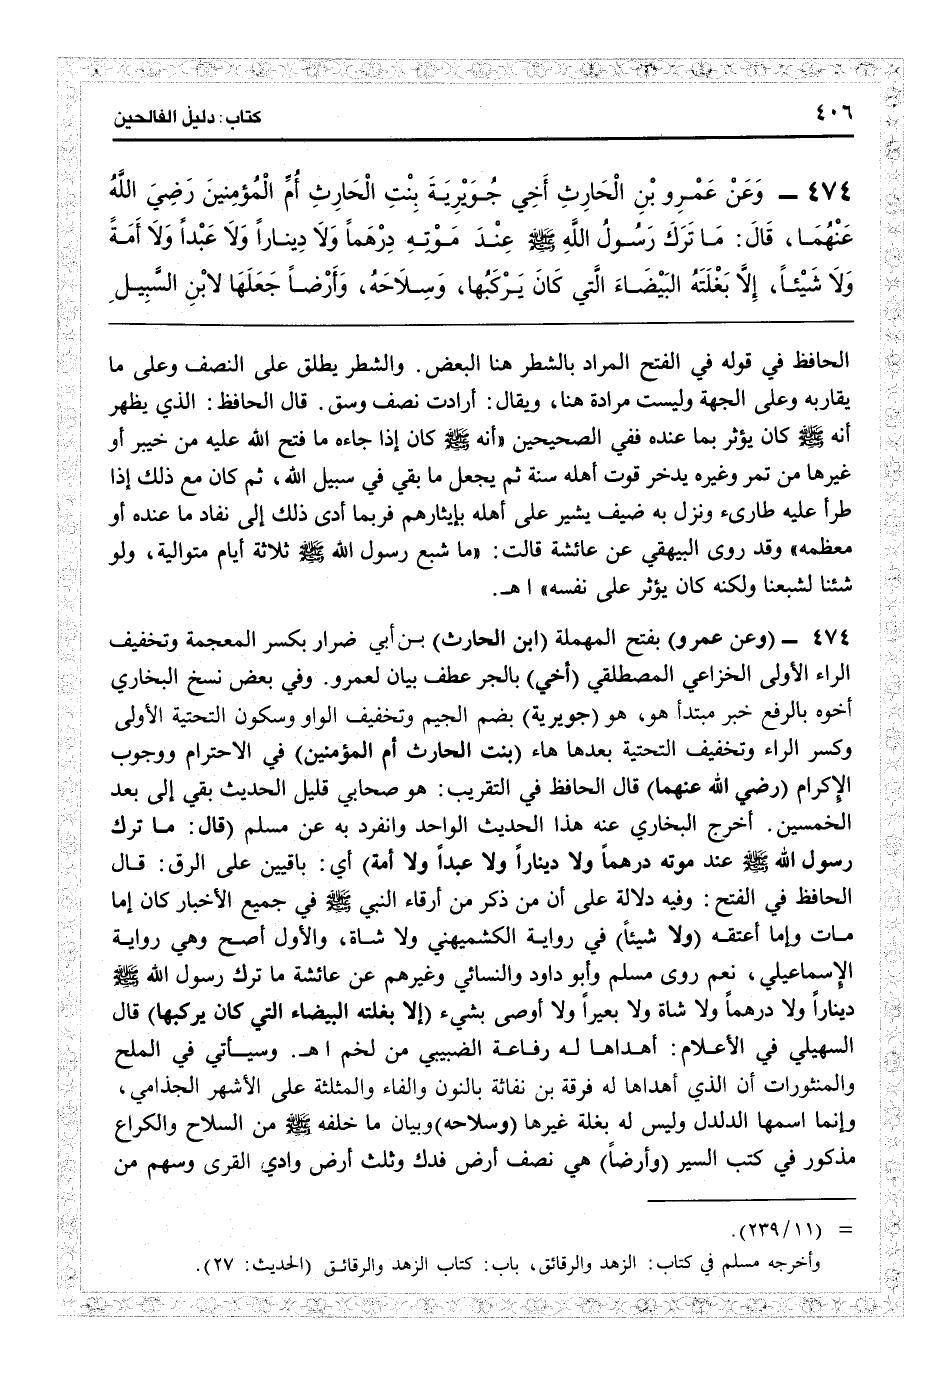 ٤٠٦
كتاب: دليل الفالحين
٤٧٤ ــ وَعَنْ عَمْرِو بْنِ الْحَارِثِ أَخِي جُوَيْرِيَةَ بِنْتِ الْحَارِثِ أُمِّ الْمُؤْمِنِينَ رَضِيَ اللَّهُ
عَنْهُمَا، قَالَ: مَا تَرَكَ رَسُولُ اللَّهِ ﷺ عِنْدَ مَوْتِهِ دِرْهَماً وَلَا دِينَاراً وَلَا عَبْداً وَلَا أَمَةً
وَلَا شَيْئاً، إِلَّا بَغْلَتَهُ البَيْضَاءَ الَّتِي كَانَ يَرْكَبُها، وَسِلَاحَهُ، وَأَرْضاً جَعَلَهَا لابْنِ السَّبِيلِ
الحافظ في قوله في الفتح المراد بالشطر هنا البعض. والشطر يطلق على النصف وعلى ما
يقاربه وعلى الجهة وليست مرادة هنا، ويقال: أرادت نصف وسق. قال الحافظ: الذي يظهر
أنه ﷺ كان يؤثر بما عنده ففي الصحيحين «أنه ﷺ كان إذا جاءه ما فتح الله عليه من خيبر أو
غيرها من تمر وغيره يدخر قوت أهله سنة ثم يجعل ما بقي في سبيل الله، ثم كان مع ذلك إذا
طرأ عليه طارىء ونزل به ضيف يشير على أهله بإيثارهم فربما أدى ذلك إلى نفاد ما عنده أو
معظمه» وقد روى البيهقي عن عائشة قالت: «ما شبع رسول الله ﷺ ثلاثة أيام متوالية، ولو
شئنا لشبعنا ولكنه كان يؤثر على نفسه» ا هـ.
٤٧٤ ــ (وعن عمرو) بفتح المهملة (ابن الحارث) بن أبي ضرار بكسر المعجمة وتخفيف
الراء الأولى الخزاعي المصطلقي (أخي) بالجر عطف بيان لعمرو. وفي بعض نسخ البخاري
أخوه بالرفع خبر مبتدأ هو، هو (جويرية) بضم الجيم وتخفيف الواو وسكون التحتية الأولى
وكسر الراء وتخفيف التحتية بعدها هاء (بنت الحارث أم المؤمنين) في الاحترام ووجوب
الإكرام (رضي الله عنهما) قال الحافظ في التقريب: هو صحابي قليل الحديث بقي إلى بعد
الخمسين. أخرج البخاري عنه هذا الحديث الواحد وانفرد به عن مسلم (قال: ما ترك
رسول الله ﷺ عند موته درهماً ولا ديناراً ولا عبداً ولا أمة) أي: باقيين على الرق: قال
الحافظ في الفتح: وفيه دلالة على أن من ذكر من أرقاء النبي ﷺ في جميع الأخبار كان إما
مات وإما أعتقه (ولا شيئاً) في رواية الكشميهني ولا شاة، والأول أصح وهي رواية
الإسماعيلي، نعم روى مسلم وأبو داود والنسائي وغيرهم عن عائشة ما ترك رسول الله ﷺ
ديناراً ولا درهماً ولا شاة ولا بعيراً ولا أوصى بشيء (إلا بغلته البيضاء التي كان يركبها) قال
السهيلي في الأعلام: أهداها له رفاعة الضبيبي من لخم ا هـ. وسيأتي في الملح
والمنثورات أن الذي أهداها له فرقة بن نفاثة بالنون والفاء والمثلثة على الأشهر الجذامي،
وإنما اسمها الدلدل وليس له بغلة غيرها (وسلاحه)وبيان ما خلفه ﷺ من السلاح والكراع
مذكور في كتب السير (وأرضاً) هي نصف أرض فدك وثلث أرض وادي القرى وسهم من
= (٢٣٩/١١).
وأخرجه مسلم في كتاب: الزهد والرقائق، باب: كتاب الزهد والرقائق (الحديث: ٢٧).